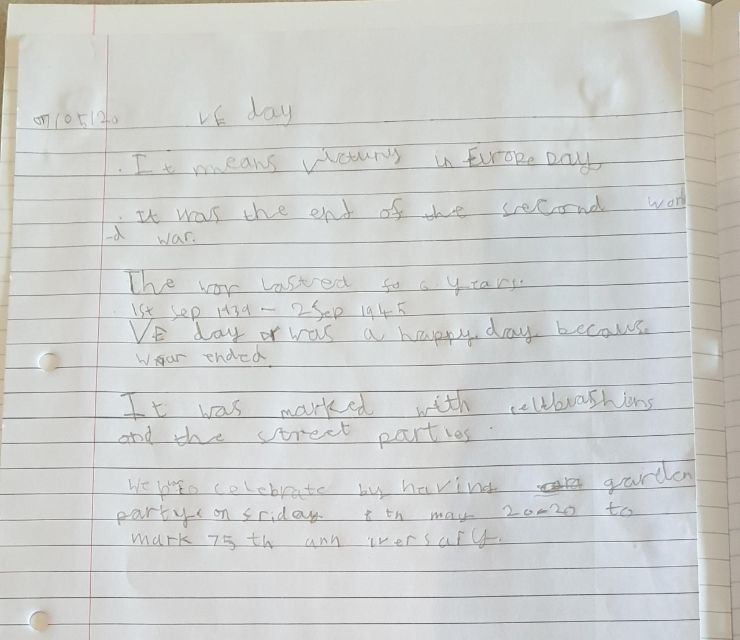 07/05/20 VE day
. It means victury in Europe Day
. It was the end of the second worl
-d war.
The wor lastred fo 6 years.
1st Sep 1939 - 2 Sep 1945
VE day or was a happy day becaus
war ended.
It was marked with celtbrashions
and the street parties.
We to celebrate by having garden
party on friday 8th may 2020 to
mark 75 th ann iversary.